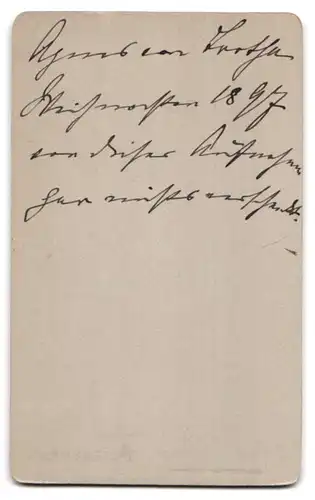 Agnes von Trotha
Weihnachten 1897
von dieser Aufnahme
gar nichts verschenkt.